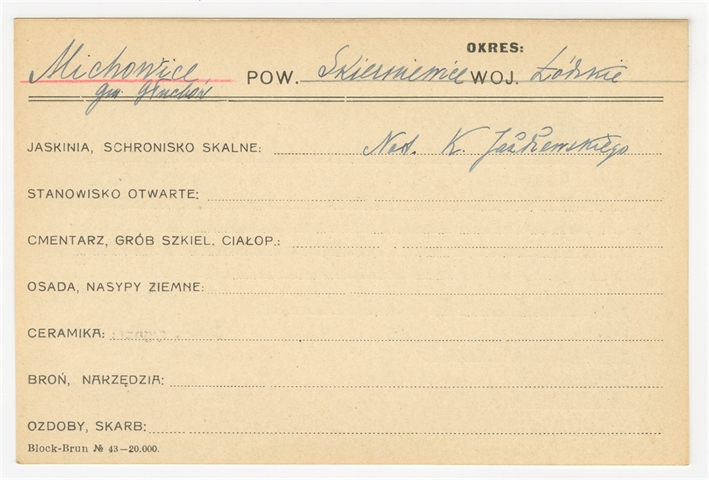 OKRES:
Michowice POW. Skierniewice WOJ. Łódzkie
gm. Głuchów
JASKINIA, SCHRONISKO SKALNE: Not. K. Jażdżewskiego
STANOWISKO OTWARTE:
CMENTARZ, GRÓB SZKIEL. CIAŁOP.:
OSADA, NASYPY ZIEMNE:
CERAMIKA:
BROŃ, NARZĘDZIA:
OZDOBY, SKARB:
Block-Brun № 43—20.000.